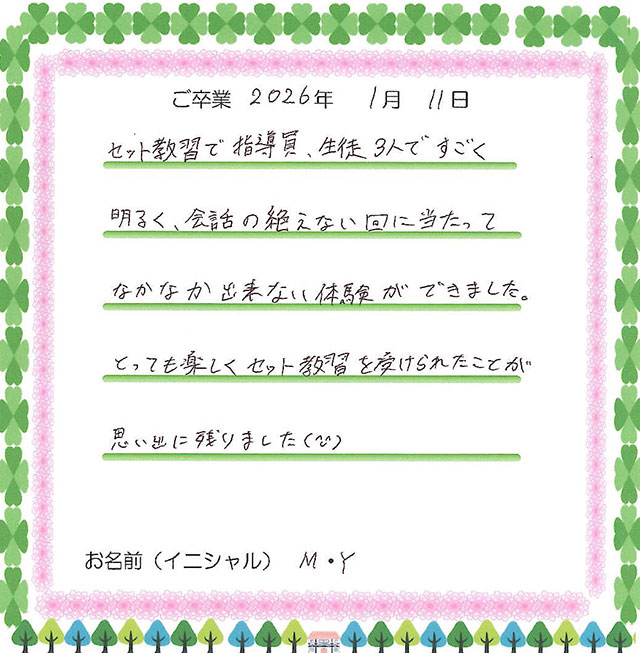 ご卒業 2026年 1月 11日
セット教習で指導員、生徒3人ですごく
明るく、会話の絶えない回に当たって
なかなか出来ない体験ができました。
とっても楽しくセット教習を受けられたことが
思い出に残りました(^^)
お名前(イニシャル) M・Y